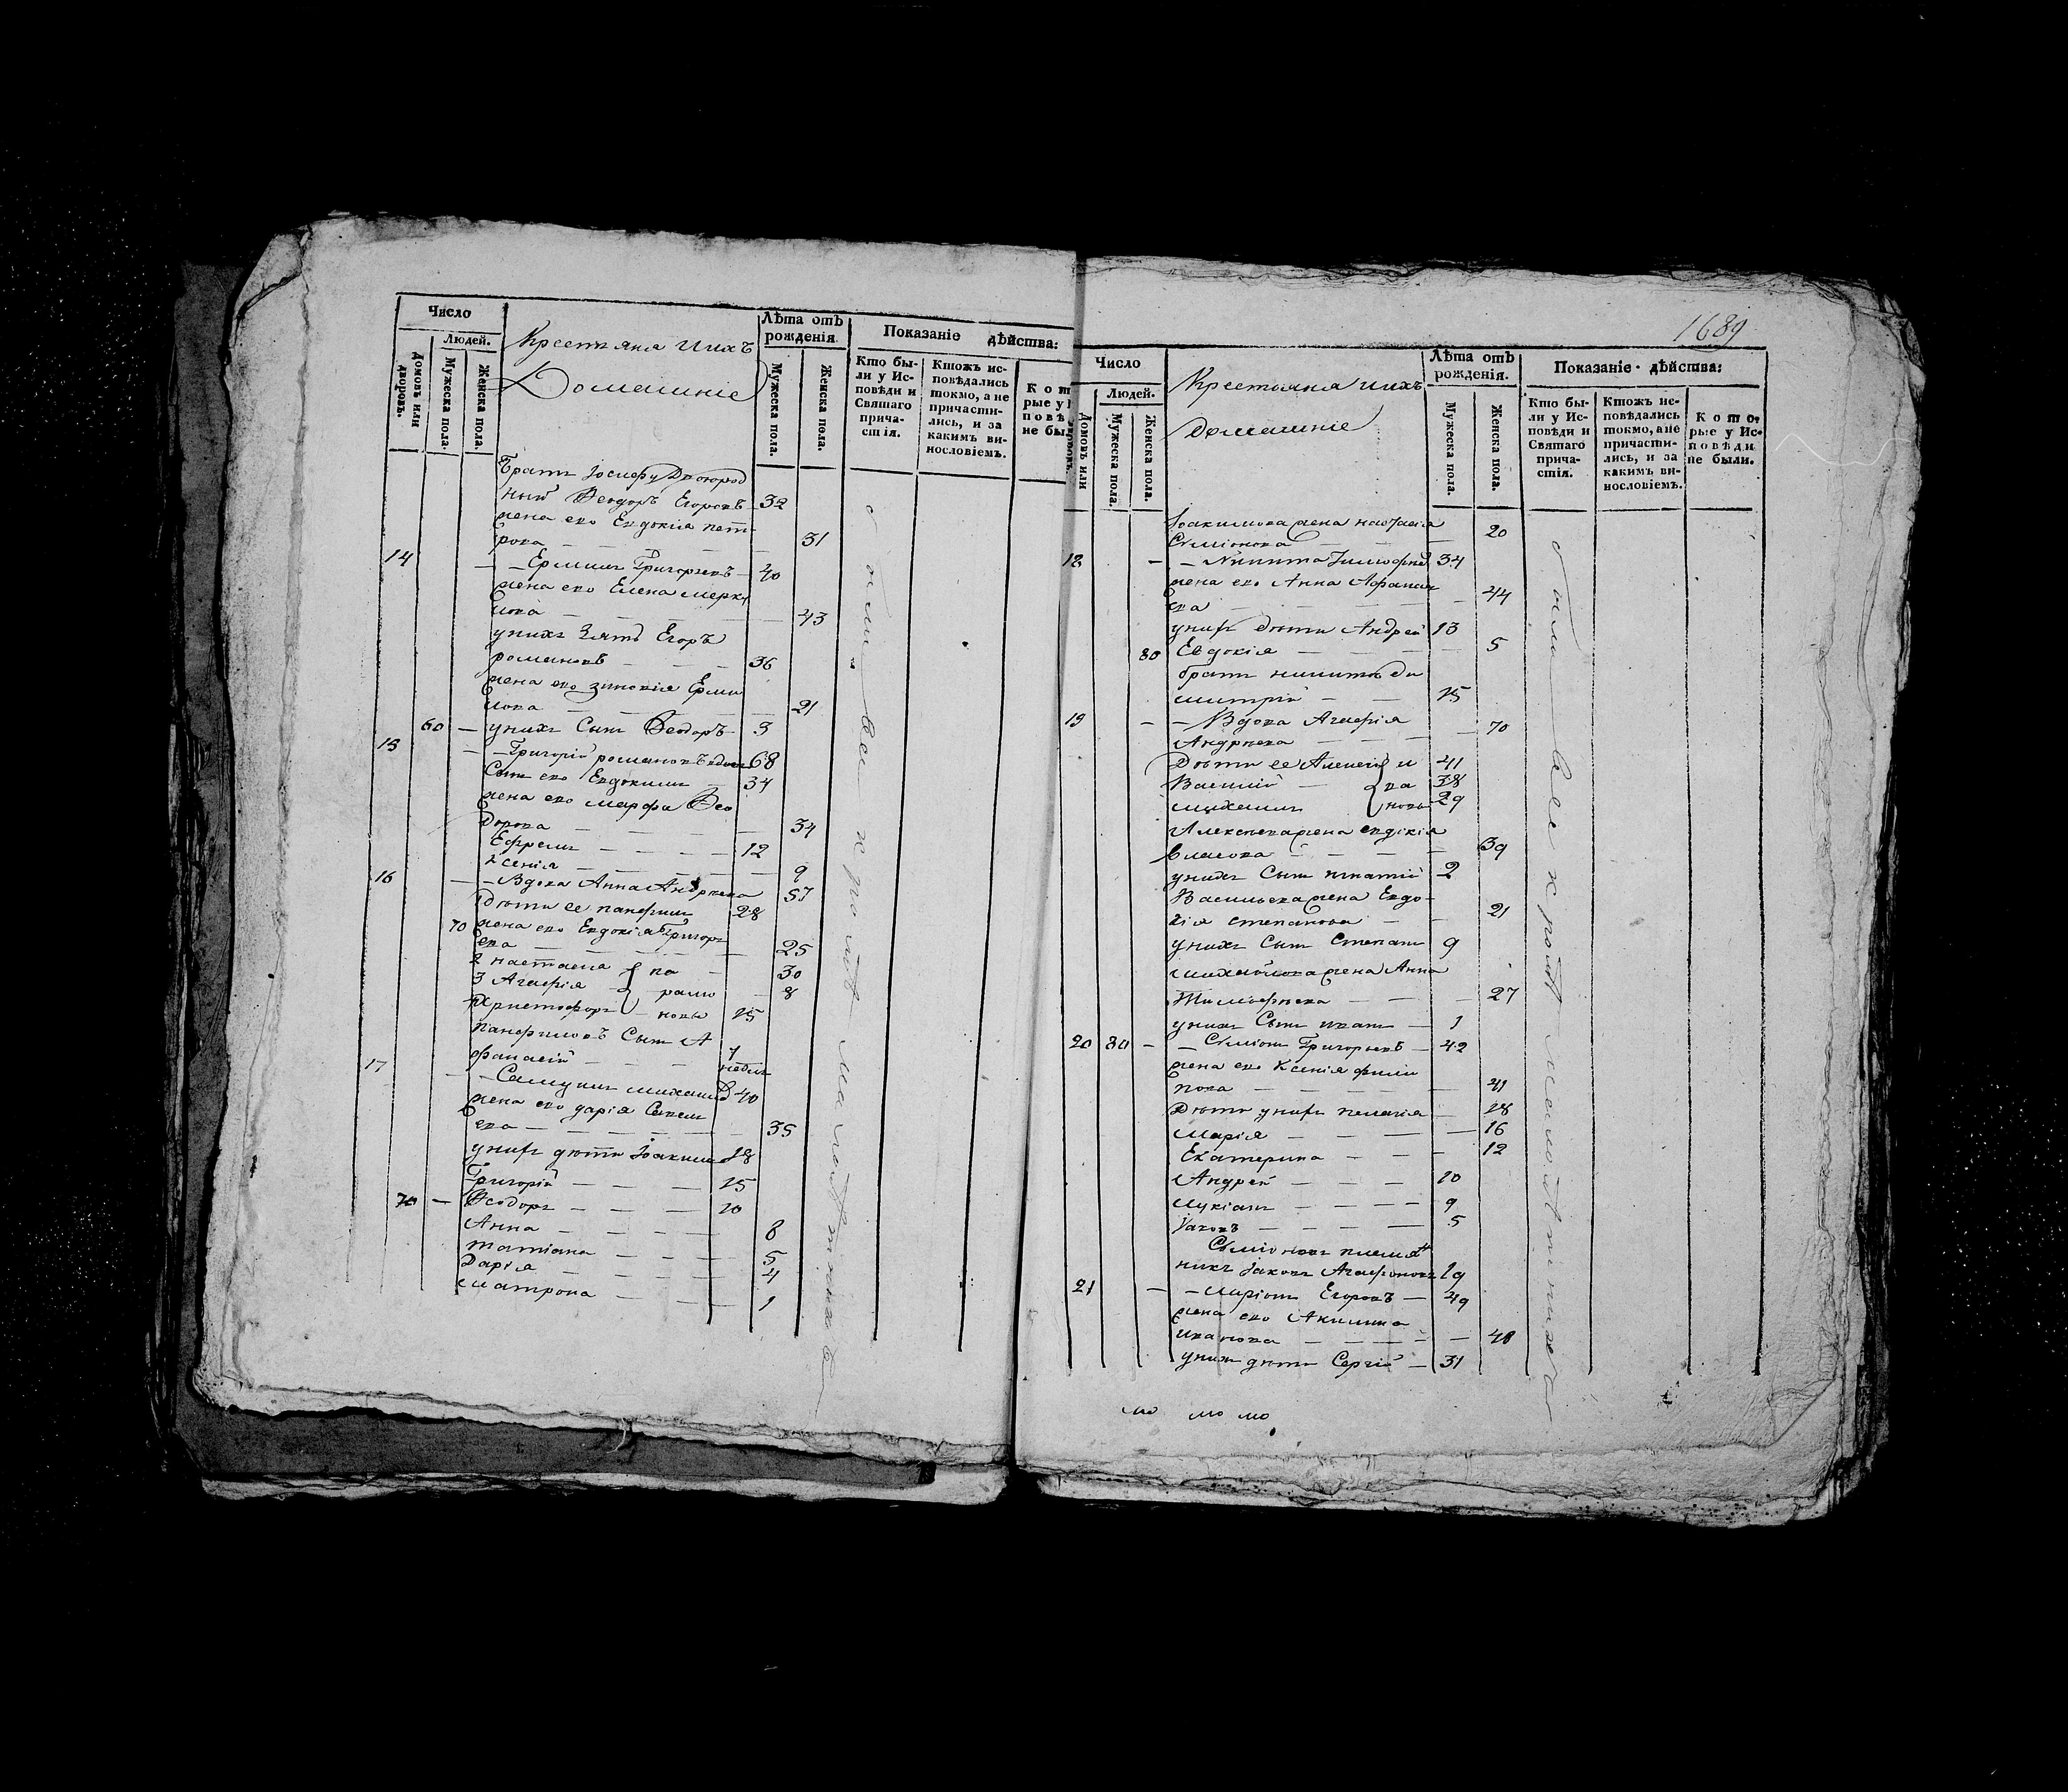 Число
Людей.
Домовъ или дворовъ.
Мужеска пола.
Женска пола.
Крестьяна иихъ
Домашніе
Лѣта отъ рожденія.
Мужеска пола.
Женска пола.
Показаніе дѣйства:
Кто бы-
ли у Ис-
повѣди и
Святаго
прича-
стія.
Ктожъ ис-
повѣдались
токмо, а не
причасти-
лись, и за
какимъ ви-
нословіемъ.
Кот
рые у
повѣ
не бы
Братъ Іосифу Двоюрод
ный Ѳеодоръ Егоровъ 32
жена его Евдокія пет-
рова — — — 31
14 — Ермилъ Григорьевъ — 40
жена его Елена
— — — 43
унихъ Зять Егоръ
романовъ — — — 36
жена его зиновія Ерми
лова — — — 21
60 — унихъ Сынъ Ѳеодоръ 3
15 — Григорій романовъ вдовъ 68
Сынъ его Евдокимъ — 34
жена его марфа Ѳео
дорова — — — 34
Ефремъ — — — 12
ксенія — — — 9
16 — Вдова Анна Андрѣева 57
Дѣти ее панфилъ 28
70 жена его Евдокія Григорь
ева — — — 25
2 настасіа } па — 30
3 Агафія } рамо — 8
Христофоръ — новы 15
панфиловъ Сынъ А
фанасій — — 7 недѣль
17 — Самуилъ михаил 40
жена его дарія
ева — — — 35
унихъ дѣти Іоакимъ 18
Григорій — — — 15
70 — Ѳеодоръ — — — 10
Анна — — — 8
татіана — — — 5
Дарія — — — 4
матрона — — — 1
были все кромѣ малолѣтнихъ
1689
Число
Людей.
Домовъ или дворовъ.
Мужеска пола.
Женска пола.
Крестьяна иихъ
Домашніе
Лѣта отъ
рожденія.
Мужеска пола.
Женска пола.
Показаніе дѣйства:
Кто бы-
ли у Ис-
повѣди и
Святаго
прича-
стія.
Ктожъ ис-
повѣдались
токмо, а не
причасти-
лись, и за
какимъ ви-
нословіемъ.
Кото-
рые у Ис-
повѣди
не были.
Іоакимова жена настасіа
Симіонова — — 20
18 — Никита Тимофѣев 34
жена его Анна Афанась
ева — — — 44
унихъ дѣти Андрей 13
80 Евдокія — — — 5
братъ никиты ди
митрій — — 15
19 — Вдова Агафія
Андрѣева — — — 70
Дѣти ее Алексѣй } и 41
Василій — } ва 38
михаилъ } новы 29
Алексѣева жена евдокія
власова — — — 39
унихъ Сынъ игнатій 2
Васильева жена Евдо-
кія степанова — — 21
унихъ Сынъ Степанъ 9
михайлова жена Анна
Тимофѣева — — — 27
унихъ Сынъ иванъ — 1
20 80 — Симіонъ Григорьевъ — 42
жена его Ксенія фили
пова — — — 41
Дѣти унихъ пелагія — 18
марія — — — 16
Екатерина — — — 12
Андрей — — — 10
лукіанъ — — — 9
Іаковъ — — — 5
Симіоновъ племян
никъ Іаковъ Агафоновъ 19
21 — ларіонъ Егоровъ — 49
жена его Акилина
иванова — — — 48
унихъ дѣти Сергій — 31
были все кромѣ малолѣтнихъ
мо мо мо